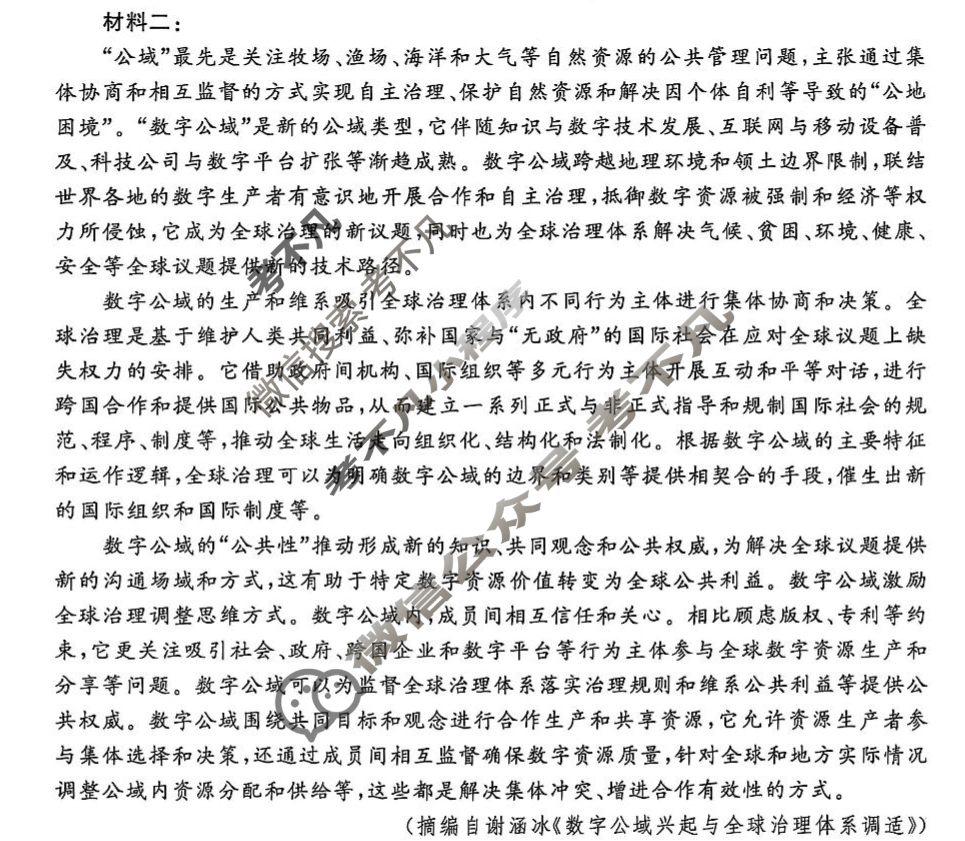 材料二：
“公域”最先是关注牧场、渔场、海洋和大气等自然资源的公共管理问题，主张通过集
体协商和相互监督的方式实现自主治理、保护自然资源和解决因个体自利等导致的“公地
困境”。“数字公域”是新的公域类型，它伴随知识与数字技术发展、互联网与移动设备普
及、科技公司与数字平台扩张等渐趋成熟。数字公域跨越地理环境和领土边界限制，联结
世界各地的数字生产者有意识地开展合作和自主治理，抵御数字资源被强制和经济等权
力所侵蚀，它成为全球治理的新议题，同时也为全球治理体系解决气候、贫困、环境、健康、
安全等全球议题提供新的技术路径。
数字公域的生产和维系吸引全球治理体系内不同行为主体进行集体协商和决策。全
球治理是基于维护人类共同利益、弥补国家与“无政府”的国际社会在应对全球议题上缺
失权力的安排。它借助政府间机构、国际组织等多元行为主体开展互动和平等对话，进行
跨国合作和提供国际公共物品，从而建立一系列正式与非正式指导和规制国际社会的规
范、程序、制度等，推动全球生活走向组织化、结构化和法制化。根据数字公域的主要特征
和运作逻辑，全球治理可以为明确数字公域的边界和类别等提供相契合的手段，催生出新
的国际组织和国际制度等。
数字公域的“公共性”推动形成新的知识、共同观念和公共权威，为解决全球议题提供
新的沟通场域和方式，这有助于特定数字资源价值转变为全球公共利益。数字公域激励
全球治理调整思维方式。数字公域内，成员间相互信任和关心。相比顾虑版权、专利等约
束，它更关注吸引社会、政府、跨国企业和数字平台等行为主体参与全球数字资源生产和
分享等问题。数字公域可以为监督全球治理体系落实治理规则和维系公共利益等提供公
共权威。数字公域围绕共同目标和观念进行合作生产和共享资源，它允许资源生产者参
与集体选择和决策，还通过成员间相互监督确保数字资源质量，针对全球和地方实际情况
调整公域内资源分配和供给等，这些都是解决集体冲突、增进合作有效性的方式。
（摘编自谢涵冰《数字公域兴起与全球治理体系调适》）
考不凡
微信搜索 考不凡
考不凡小程序
微信公众号 考不凡